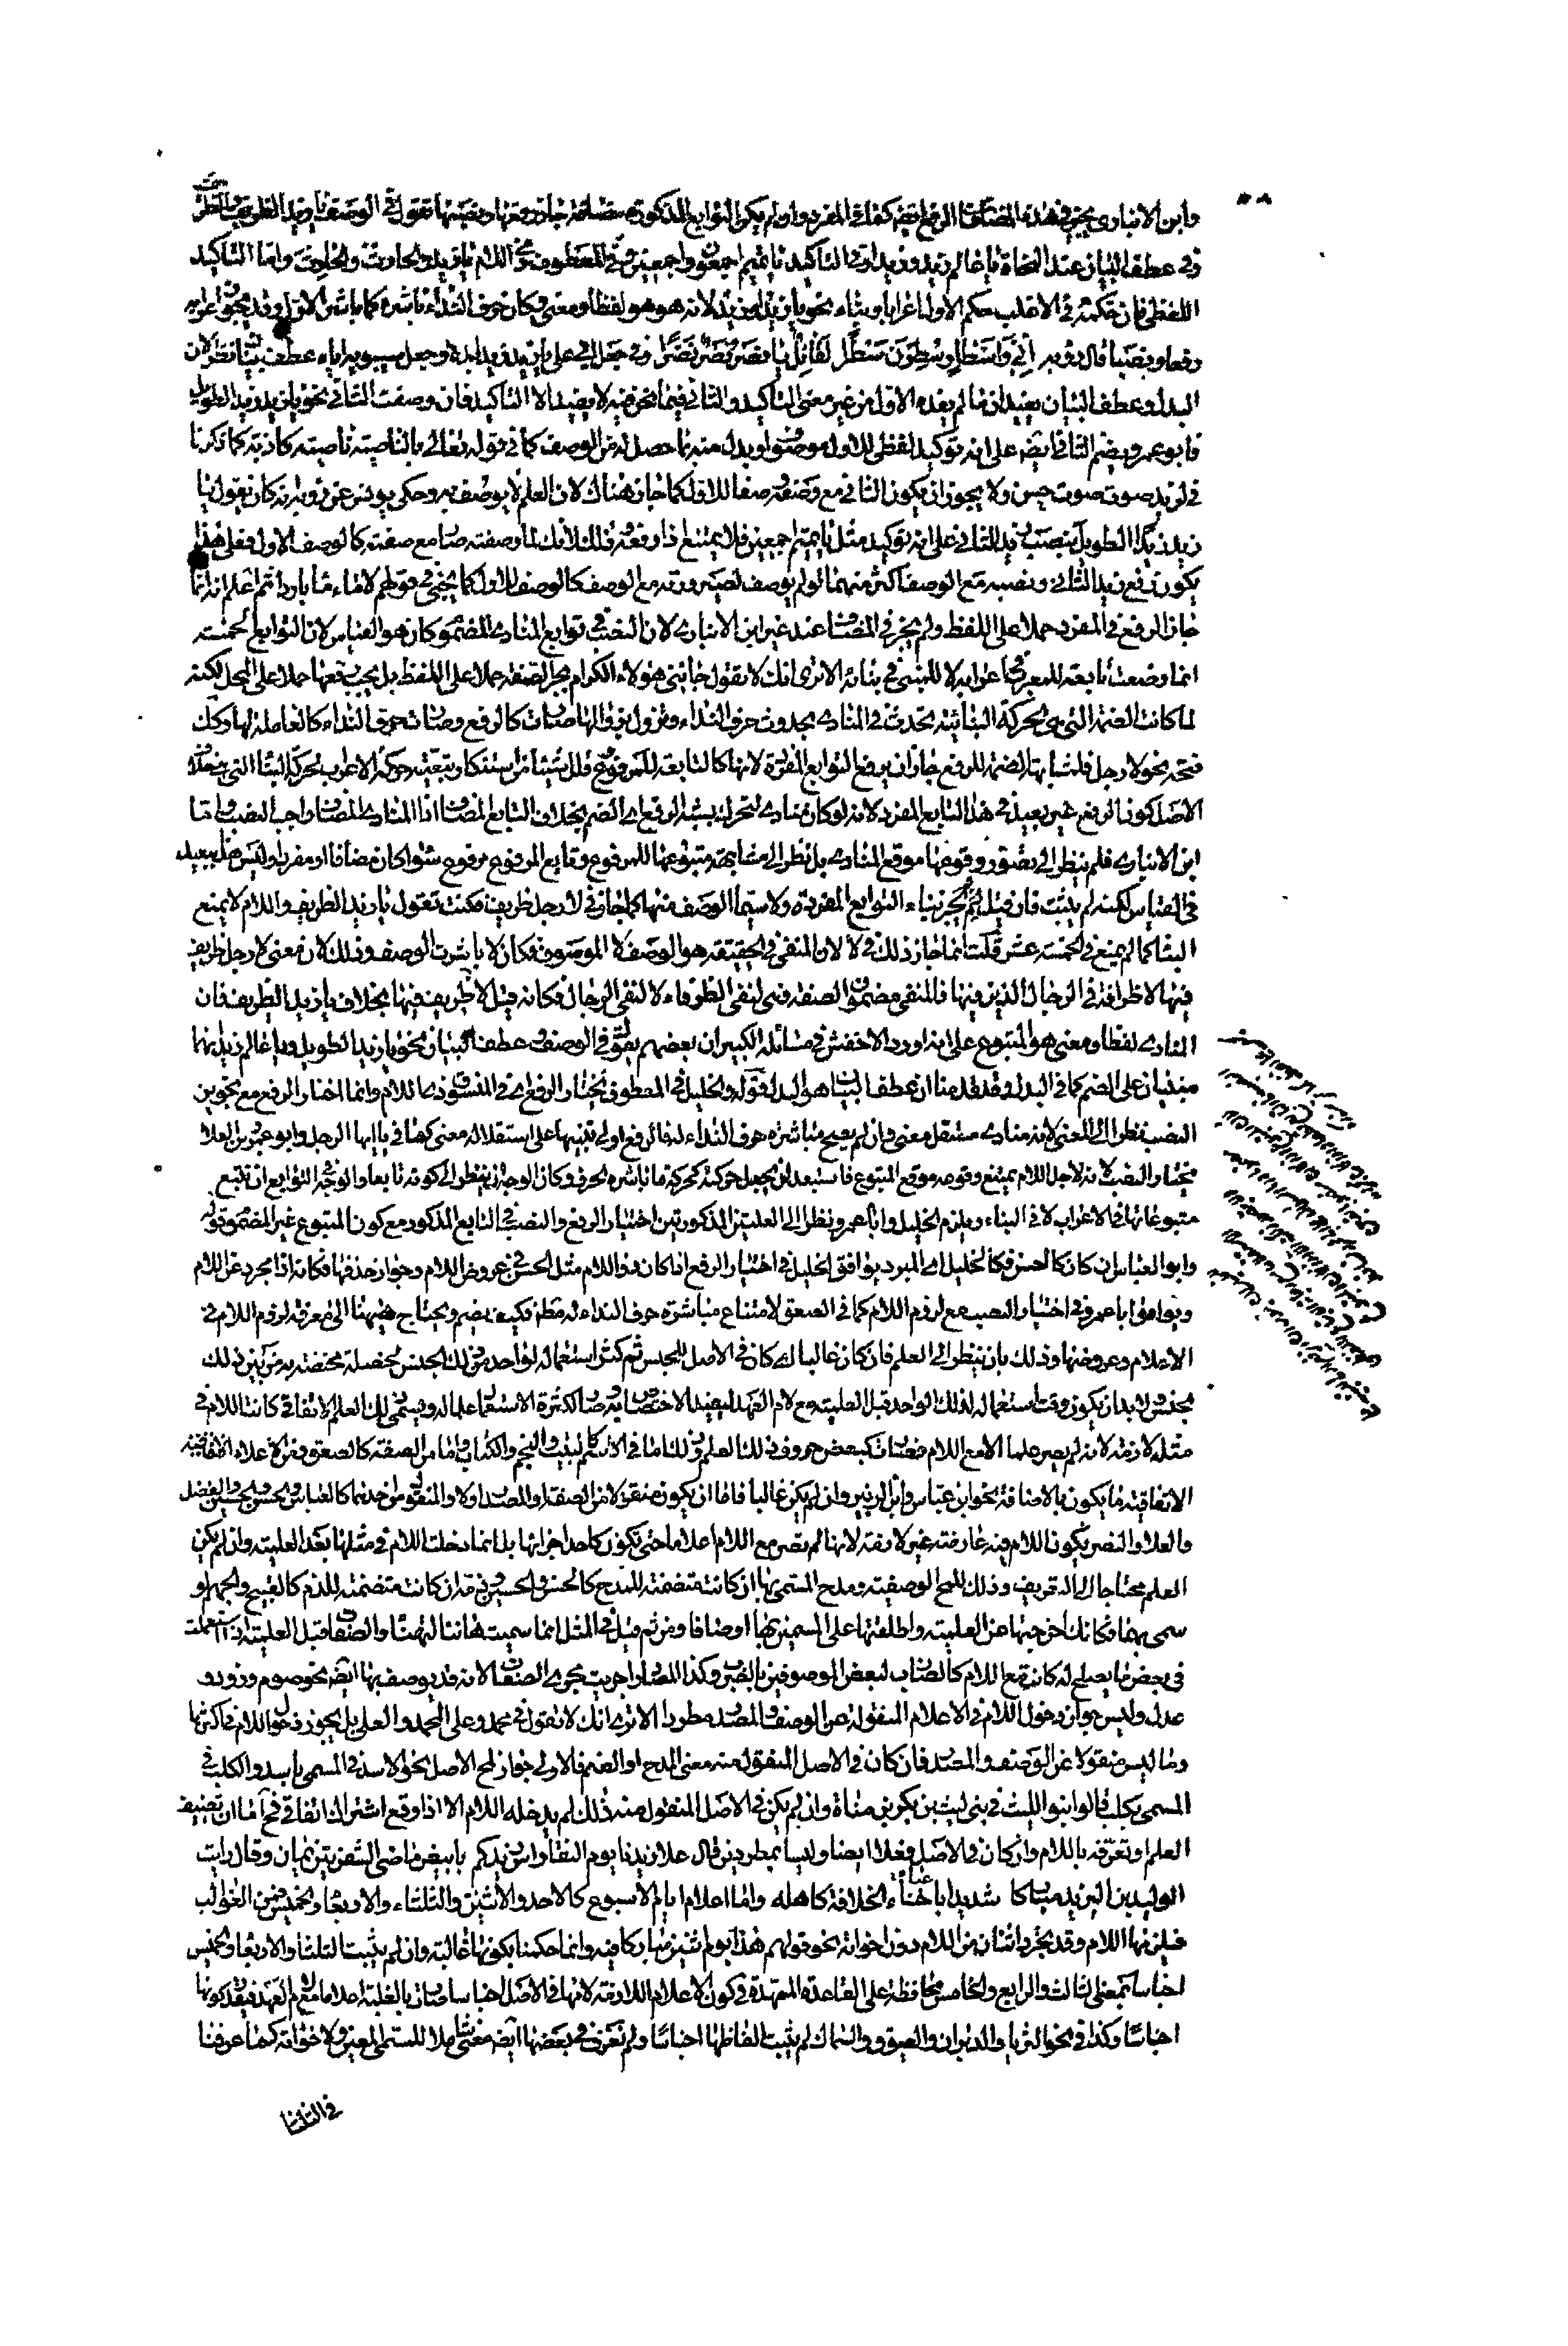 وابن الانبارى يجيز فى هذه المضافة الرفع ايضه كما فى المفرد وان لم يكن التوابع المذكورة مضافة جاز رفعها ونصبها تقول فى الوصف يا زيد الظريف والظريف
وفى عطف البيان عند النحاة يا غالم زيد وزيدا وفى التاكيد يا تميم اجمعون واجمعين وفى المعطوف ذى اللام يا زيد والحارث والحارث واما التاكيد
اللفظى فان حكمه فى الاغلب حكم الاول اعرابا وبناء نحو يا زيد زيد لانه هو هو لفظا ومعنى فكان حرف النداء باشره كما باشر الاول وقد يجوز اعرابه
رفعا ونصبا قال رؤبه انى واسطار سطرن سطرا لقائل يا نصر نصر نصرا وفى جعل ابى على يا زيد زيد بدلا وجعل سيبويه اياه عطف بيان نظر لان
البدل وعطف البيان يفيدان ما لم يفده الاول من غير معنى التاكيد والثانى فيما نحن فيه لا يفيد الا التاكيد فان وصفت الثانى نحو يا زيد زيد الطويل
فابو عمرو يضم الثانى ايضه على انه توكيد لفظى للاول موصوف او بدل منه بما حصل له من الوصف كما فى قوله تعالى بالناصية ناصية كاذبة كما ذكرنا
فى له زيد صوت صوت حسن ولا يجوز ان يكون الثانى مع وصفه وصفا للاول كما جاز هناك لان العلم لا يوصف به وحكى يونس عن رؤبة انه كان يقول يا
زيد زيدا الطويل بنصب زيد الثانى على انه توكيد مثل يا تميم اجمعين فلا يمتنع اذا رفعته ذلك لانك لما وصفته صار مع صفته كالوصف الاول فعلى هذا
يكون رفع زيد الثانى ونصبه مع الوصف اكثر منهما لو لم يوصف لصيرورته مع الوصف كالوصف للاول كما يجئ فى قولهم لا ماء ماء باردا ثم اعلم انه انما
جاز الرفع فى المفرد حملا على اللفظ ولم يجز فى المضاف عند غير ابن الانبارى لان النصب فى توابع المنادى المضموم كان هو القياس لان التوابع الخمسة
انما وضعت تابعة للمعرب فى اعرابه لا للمبنى فى بنائه الا ترى انك لا تقول جائنى هؤلاء الكرام بجر الصفة حملا على اللفظ بل يجب رفعها حملا على المحل لكنه
لما كانت الضمة التى هى الحركة البنائية تحدث فى المنادى بحدوث حرف النداء وتزول بزوالها صارت كالرفع وصار حرف النداء كالعاملة لها وكذلك
فتحة نحو لا رجل فلمشابهة الضمة للرفع جاز ان يرفع التوابع المفردة لانها كالتابعة للمرفوع
الاصل كون الرفع غير بعيد فى هذا التابع المفرد لانه لو كان منادى لتحرك بشبه الرفع اى الضم بخلاف التابع المضاف اذ المنادى المضاف واجب النصب واما
ابن الانبارى فلم ينظر الى تصور وقوعها موقع المنادى بل نظر الى مشابهة متبوعها للمرفوع وتابع المرفوع مرفوع سواء كان مضافا او مفردا وليس هذا ببعيد
فى القياس لكنه لم يثبت فان قيل فلم لم يجز بناء التوابع المفردة ولا سيما الوصف منها كما جاز فى لا رجل ظريف فكنت تقول يا زيد الظريف واللام لا يمنع
البناء كما لم يمنع فى الخمسة عشر قلت انما جاز ذلك فى لا لان المنفى فى الحقيقة هو الوصف لا الموصوف فكان لا باشرت الوصف وذلك لان معنى لا رجل ظريف
فيها لا ظرافة فى الرجال الذين فيها فالمنفى مضمون الصفة فهى لنفى الظرفاء لا لنفى الرجال فكانه قيل لا ظريف فيها بخلاف يا زيد الظريف فان
المنادى لفظا ومعنى هو المتبوع على انه اورد الاخفش فى مسائله الكبير ان بعضهم يقول فى الوصف وعطف البيان نحو يا زيد الطويل ويا غالم زيد انهما
مبنيان على الضم كما فى البدل وقد قدمنا ان عطف البيان هو البدل قوله والخليل فى المعطوف يختار الرفع اى فى المنسوق ذى اللام وانما اختار الرفع مع تجويز
النصب نظرا الى المعنى لانه منادى مستقل معنى وان لم يصح مباشرة حرف النداء له فالرفع اولى تنبيها على استقلاله معنى كما فى يا ايها الرجل وابو عمرو بن العلا
يختار النصب لانه لاجل اللام يمتنع وقوعه موقع المتبوع فاستبعد ان يجعل حركته كحركة ما باشره الحرف وكان الوجه ان ينظر الى كونه تابعا والوجه فى التوابع ان تتبع
متبوعاتها فى الاعراب لا فى البناء ويلزم الخليل وابا عمرو نظرا الى العلتين المذكورتين اختيار الرفع والنصب فى التابع المذكور مع كون المتبوع غير المضموم قوله
وابو العباس ان كان كالحسن فكالخليل اى المبرد يوافق الخليل فى اختيار الرفع اذا كان ذو اللام مثل الحسن فى عروض اللام وجواز حذفها فكانه اذا مجرد عن اللام
ويوافق ابا عمرو فى اختيار النصب مع لزوم اللام كما فى الصعق لامتناع مباشرة حرف النداء له مطلقا فكيف يضم ويحتاج ههنا الى معرفة لزوم اللام فى
الاعلام وعروضها وذلك بان ينظر الى العلم فان كان غالبا اى كان فى الاصل للجنس ثم كثر استعماله لواحد من ذلك الجنس لخصلة مختصة به من بين ذلك
الجنس فلا بد ان يكون وقت استعماله لذلك الواحد قبل العلمية مع لام العهد ليفيد الاختصاص به ثم صار لكثرة الاستعمال علما له ويسمى ذلك العلم الاتفاقى كانت اللام فى
مثله لازمة لانه لم يصر علما الا مع اللام فصارت كبعض حروف ذلك العلم وذلك اما فى الاسم كالبيت والنجم والكتاب واما من الصفة كالصعق ومن الاعلام
الاتفاقية ما يكون بالاضافة نحو ابن عباس وابن الزبير وان لم يكن غالبا فاما ان يكون منقولا من الصفة او المصدر اولا والمنقول من احدهما كالعباس والحسن والحسين والفضل
والعلاء والنصر يكون اللام فيه عارضة غير لازمة لانها لم تصر مع اللام اعلاما حتى تكون كاحد اجزائها بل انما دخلت اللام فى مثلها بعد العلمية وان لم يكن
العلم محتاجا الى التعريف وذلك للمح الوصفية ومدح المسمى بها ان كانت متضمنة للمدح كالحسن والحسين وذمه ان كانت متضمنة للذم كالقبيح والجهم لو
سمى بهما فكانك اخرجتها عن العلمية واطلقتها على المسمين بها اوصافا ومن ثم قيل فى المثل انما سميت هانئا لتهنا والصفات قبل العلمية اذا استعملت
فى بعض ما يصلح له كانت مع اللام كالضراب لبعض الموصوفين بالضرب وكذا المصادر اجريت مجرى الصفات لانه قد يوصف بها ايضه نحو صوم وزور و
عدل وليس جواز دخول اللام فى الاعلام المنقولة عن الوصف والمصدر مطردا الا ترى انك لا تقول فى محمد وعلى المحمد والعلى بل يجوز دخول اللام فى اكثرها
وما ليس منقولا عن الوصف والمصدر فان كان فى الاصل المنقول منه معنى المدح او الذم فالاولى جواز لمح الاصل نحو الاسد فى المسمى باسد والكلب فى
المسمى بكلب قالوا بنو الليث فى بنى ليث بن بكر بن مناة وان لم يكن فى الاصل المنقول منه ذلك لم يدخله اللام الا اذا وقع اشتراك اتفاقى فح اما ان تضيف
العلم او تعرفه باللام وان كان فى الاصل فعلا ايضا وليسا بمطردين قال علا زيدنا يوم النقا راس زيدكم بابيض ماضى الشفرتين يمان وقال رايت
الوليد بن اليزيد مباركا شديدا باحناء الخلافة كاهله واما اعلام ايام الاسبوع كالاحد والاثنين والثلثاء والاربعاء والخميس فمن الغوالب
فيلزمها اللام وقد يجرد اثنان من اللام دون اخواته نحو قولهم هذا يوم اثنين مباركا فيه وانما حكمنا بكونها غالبة وان لم يثبت الثلثاء والاربعاء والخميس
اجناسا بمعنى الثالث والرابع والخامس محافظة على القاعدة الممهدة فى كون الاعلام اللازمة لامها فى الاصل اجناسا صارت بالغلبة اعلاما مع لام العهد فيقدر كونها
اجناسا وكذا فى نحو الثريا والدبران والعيوق والسماك لم يثبت الفاظها اجناسا ولم نعرف فى بعضها ايضه معنى شاملا للمسمى المعين ولاخواته كما عرفنا
فى الثلثا